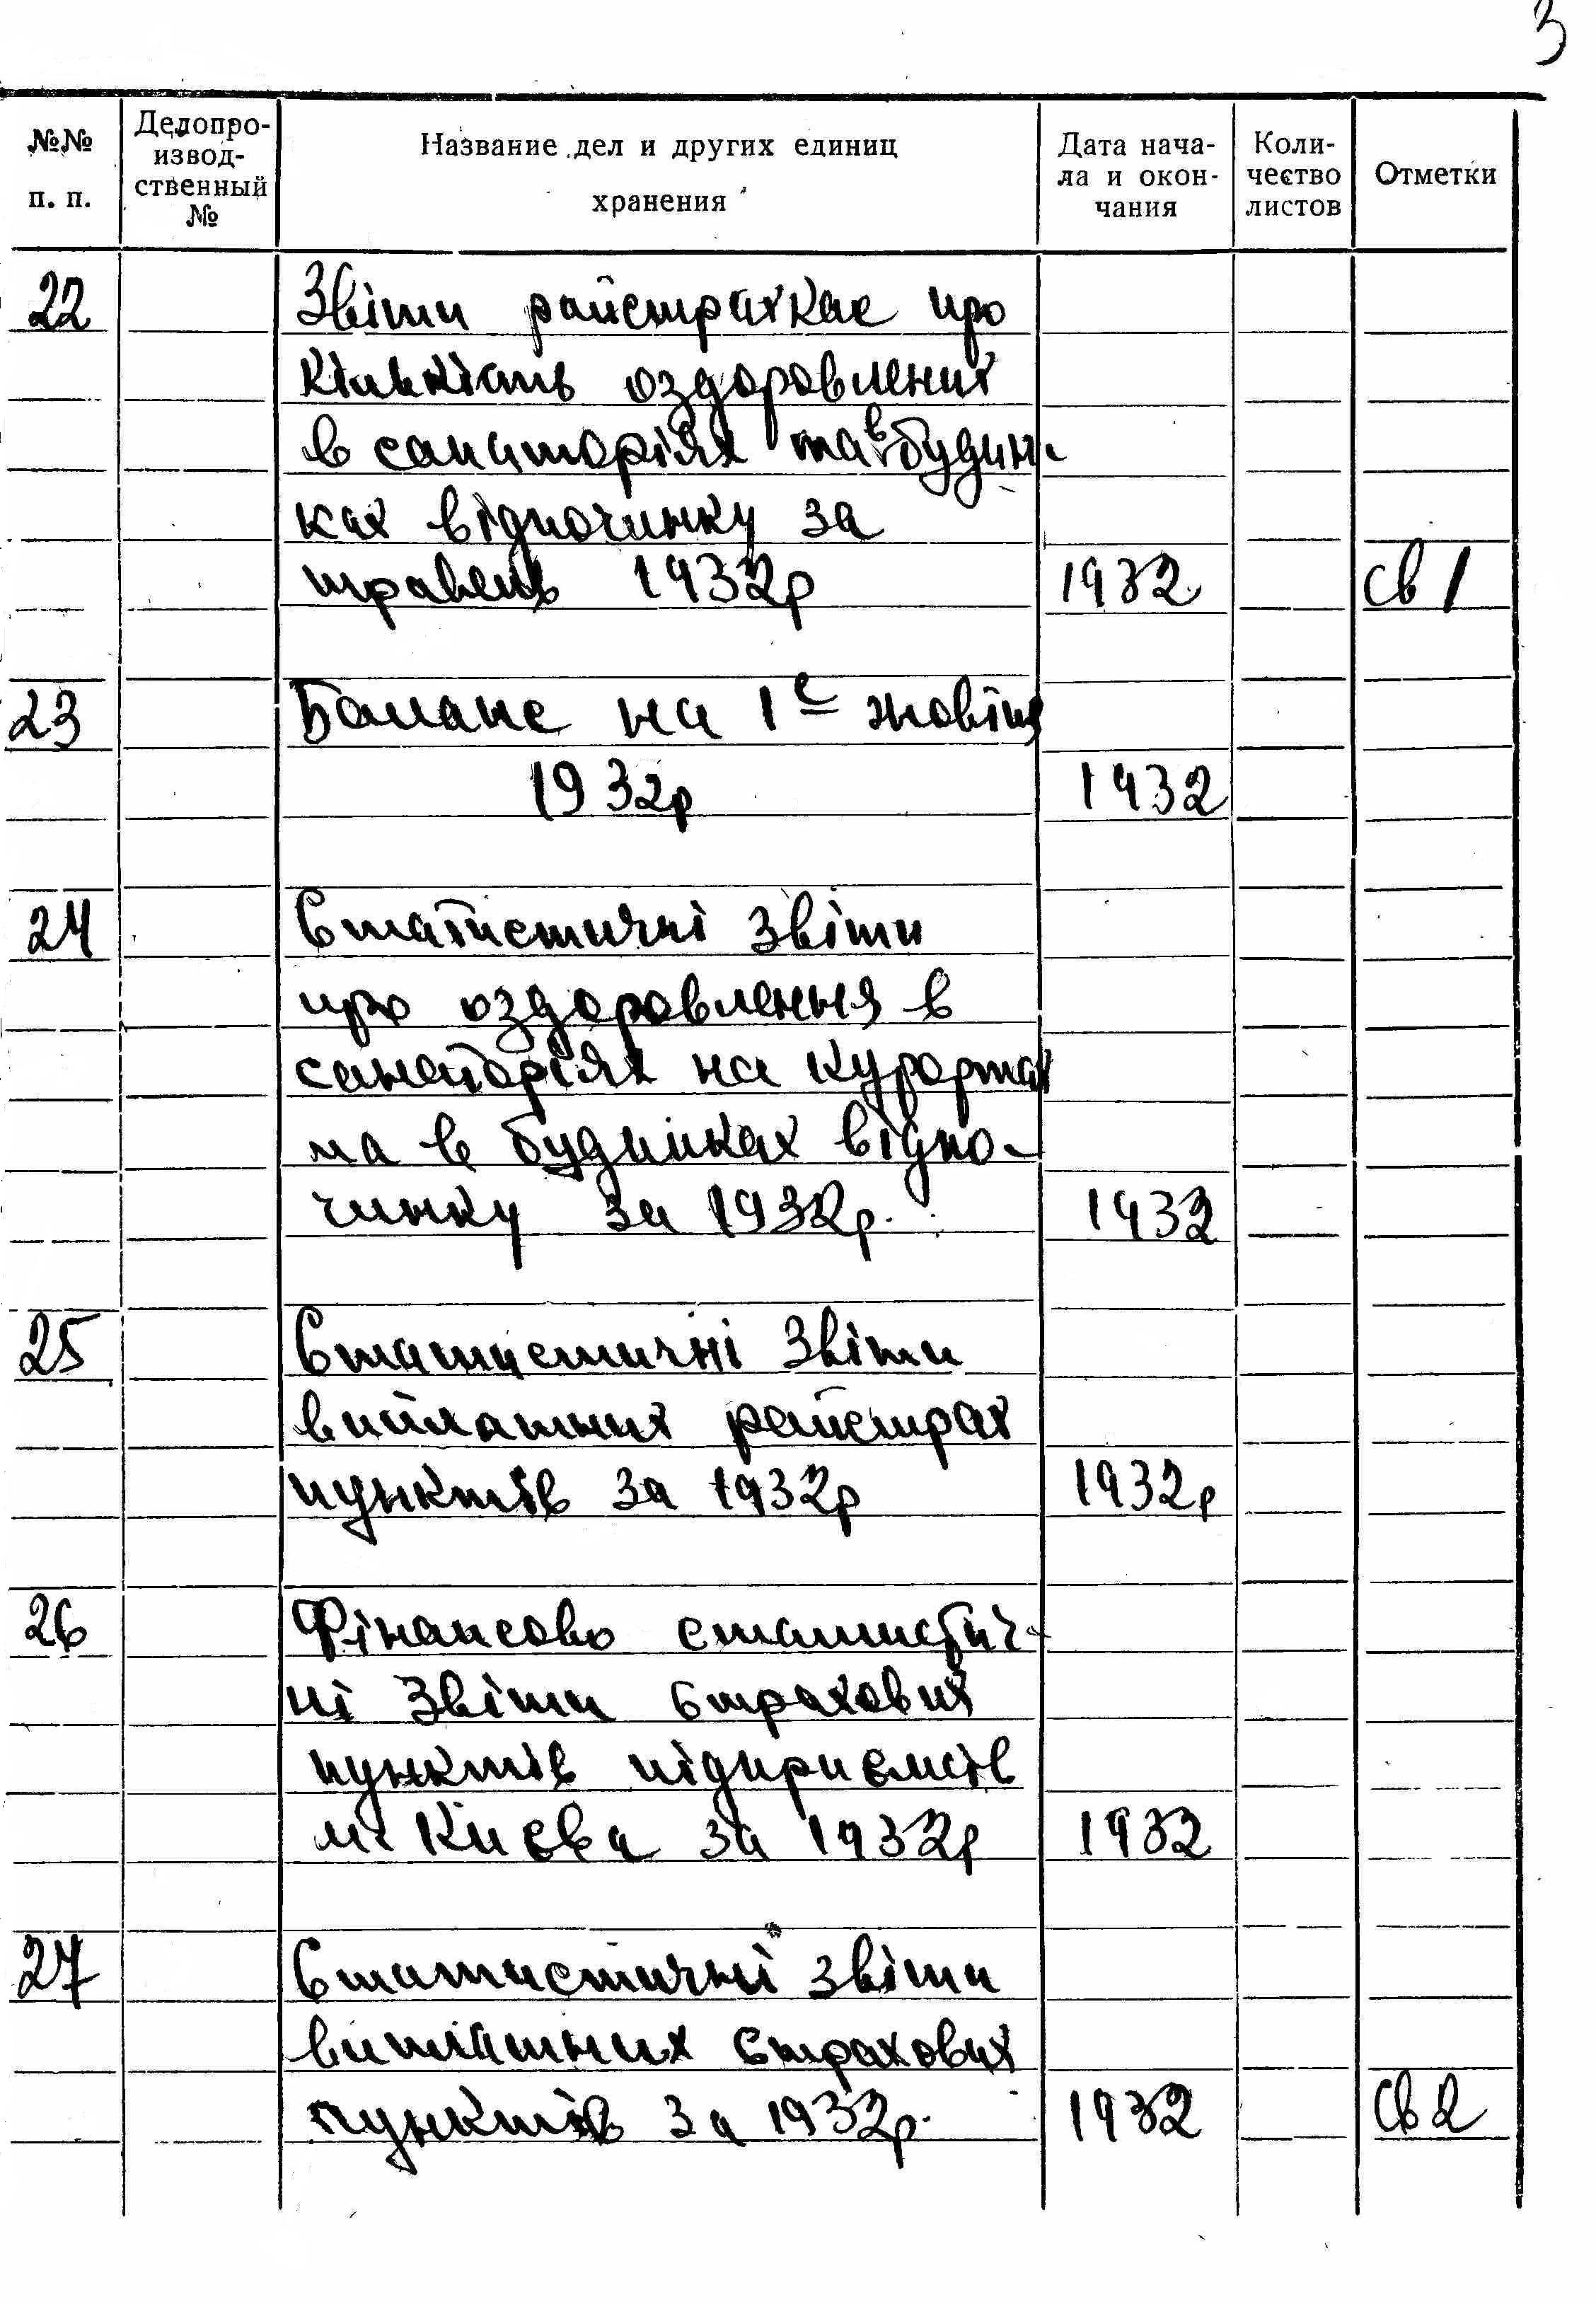 3
№№ п. п.
Делопро-
извод-
ственный
№
Название дел и других единиц
хранения
Дата нача-
ла и окон-
чания
Коли-
чество
листов
Отметки
22 Звіти райстрахкас про
кількість оздоровлених
в санаторіях та в будин-
ках відпочинку за
травень 1932р 1932 св 1
23 Баланс на 1е жовтня
1932р 1932
24 Статистичні звіти
про оздоровлення в
санаторіях на курортах
та в будинках відпо-
чинку за 1932р. 1932
25 Статистичні звіти
виплатних райстрах
пунктів за 1932р 1932р
26 Фінансово статистич-
ні звіти страхових
пунктів підприємств
м. Києва за 1932р 1932
27 Статистичні звіти
виплатних страхових
пунктів за 1932р. 1932 св 2